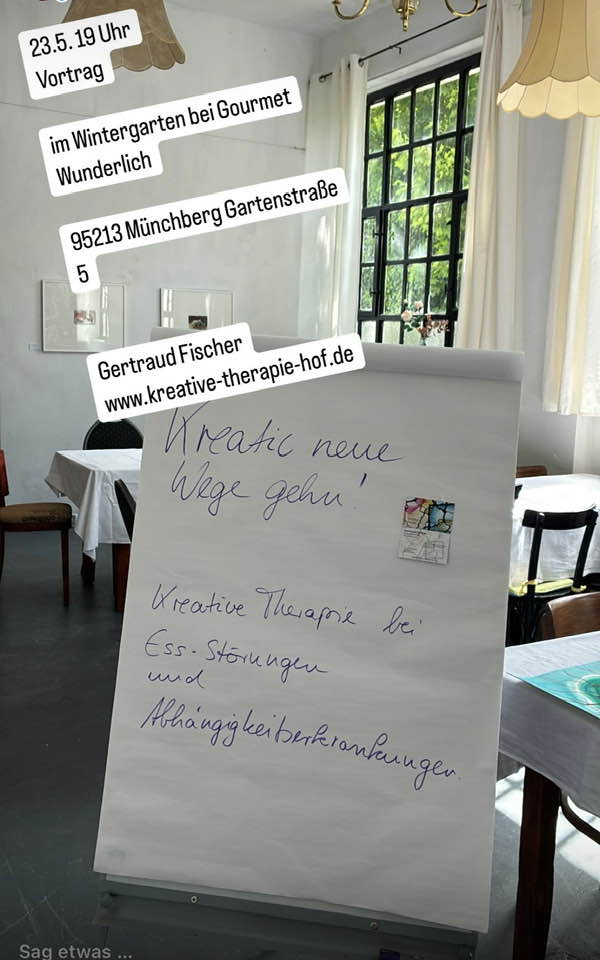 23.5. 19 Uhr
Vortrag
im Wintergarten bei Gourmet
Wunderlich
95213 Münchberg Gartenstraße
5
Gertraud Fischer
www.kreative-therapie-hof.de
Kreativ neue
Wege gehn!
Kreative Therapie bei
Ess-Störungen
und
Abhängigkeitserkrankungen.
Sag etwas ...